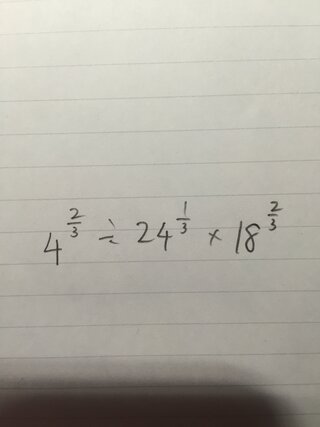 4^{\frac{2}{3}} ÷ 24^{\frac{1}{3}} × 18^{\frac{2}{3}}